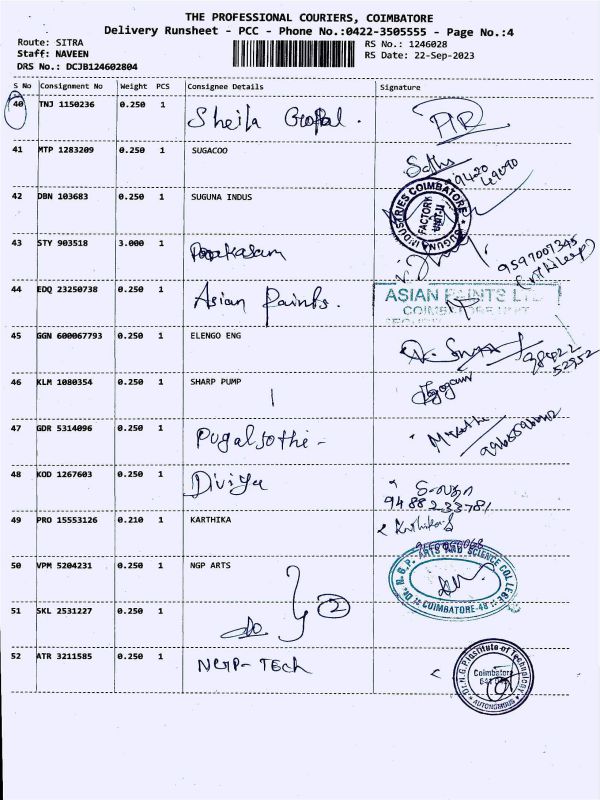 THE PROFESSIONAL COURIERS, COIMBATORE
Delivery Runsheet - PCC - Phone No.:0422-3505555 - Page No.:4
Route: SITRA RS No.: 1246028
Staff: NAVEEN RS Date: 22-Sep-2023
DRS No.: DCJB124602804
S No Consignment No Weight PCS Consignee Details Signature
40 TNJ 1150236 0.250 1 Sheila Gopal.
41 MTP 1283209 0.250 1 SUGACOO
42 DBN 103683 0.250 1 SUGUNA INDUS
SUGUNA INDUSTRIES COIMBATORE
FACTORY
UNIT-II
43 STY 903518 3.000 1 Prakasam
9597007345
44 EDQ 23250738 0.250 1 Asian Paints.
ASIAN PAINTS LTD
45 GGN 600067793 0.250 1 ELENGO ENG
46 KLM 1080354 0.250 1 SHARP PUMP
47 GDR 5314096 0.250 1 Pugaljothi -
48 KOD 1267603 0.250 1 Diviya
9488233781
49 PRO 15553126 0.210 1 KARTHIKA
50 VPM 5204231 0.250 1 NGP ARTS
Dr. N.G.P. ARTS AND SCIENCE COLLEGE
COIMBATORE-48
51 SKL 2531227 0.250 1 do 2
52 ATR 3211585 0.250 1 NGP-Tech
Dr.N.G.P.Institute of Technology
Coimbatore
AUTONOMOUS